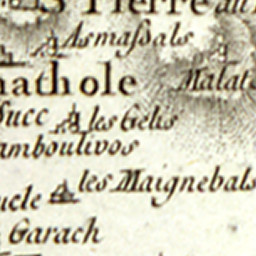 S Pierre au
Asmaſsals
nathole
Malat
Succ
les Gelis
amboulivos
les Maignebals
uele
Garach